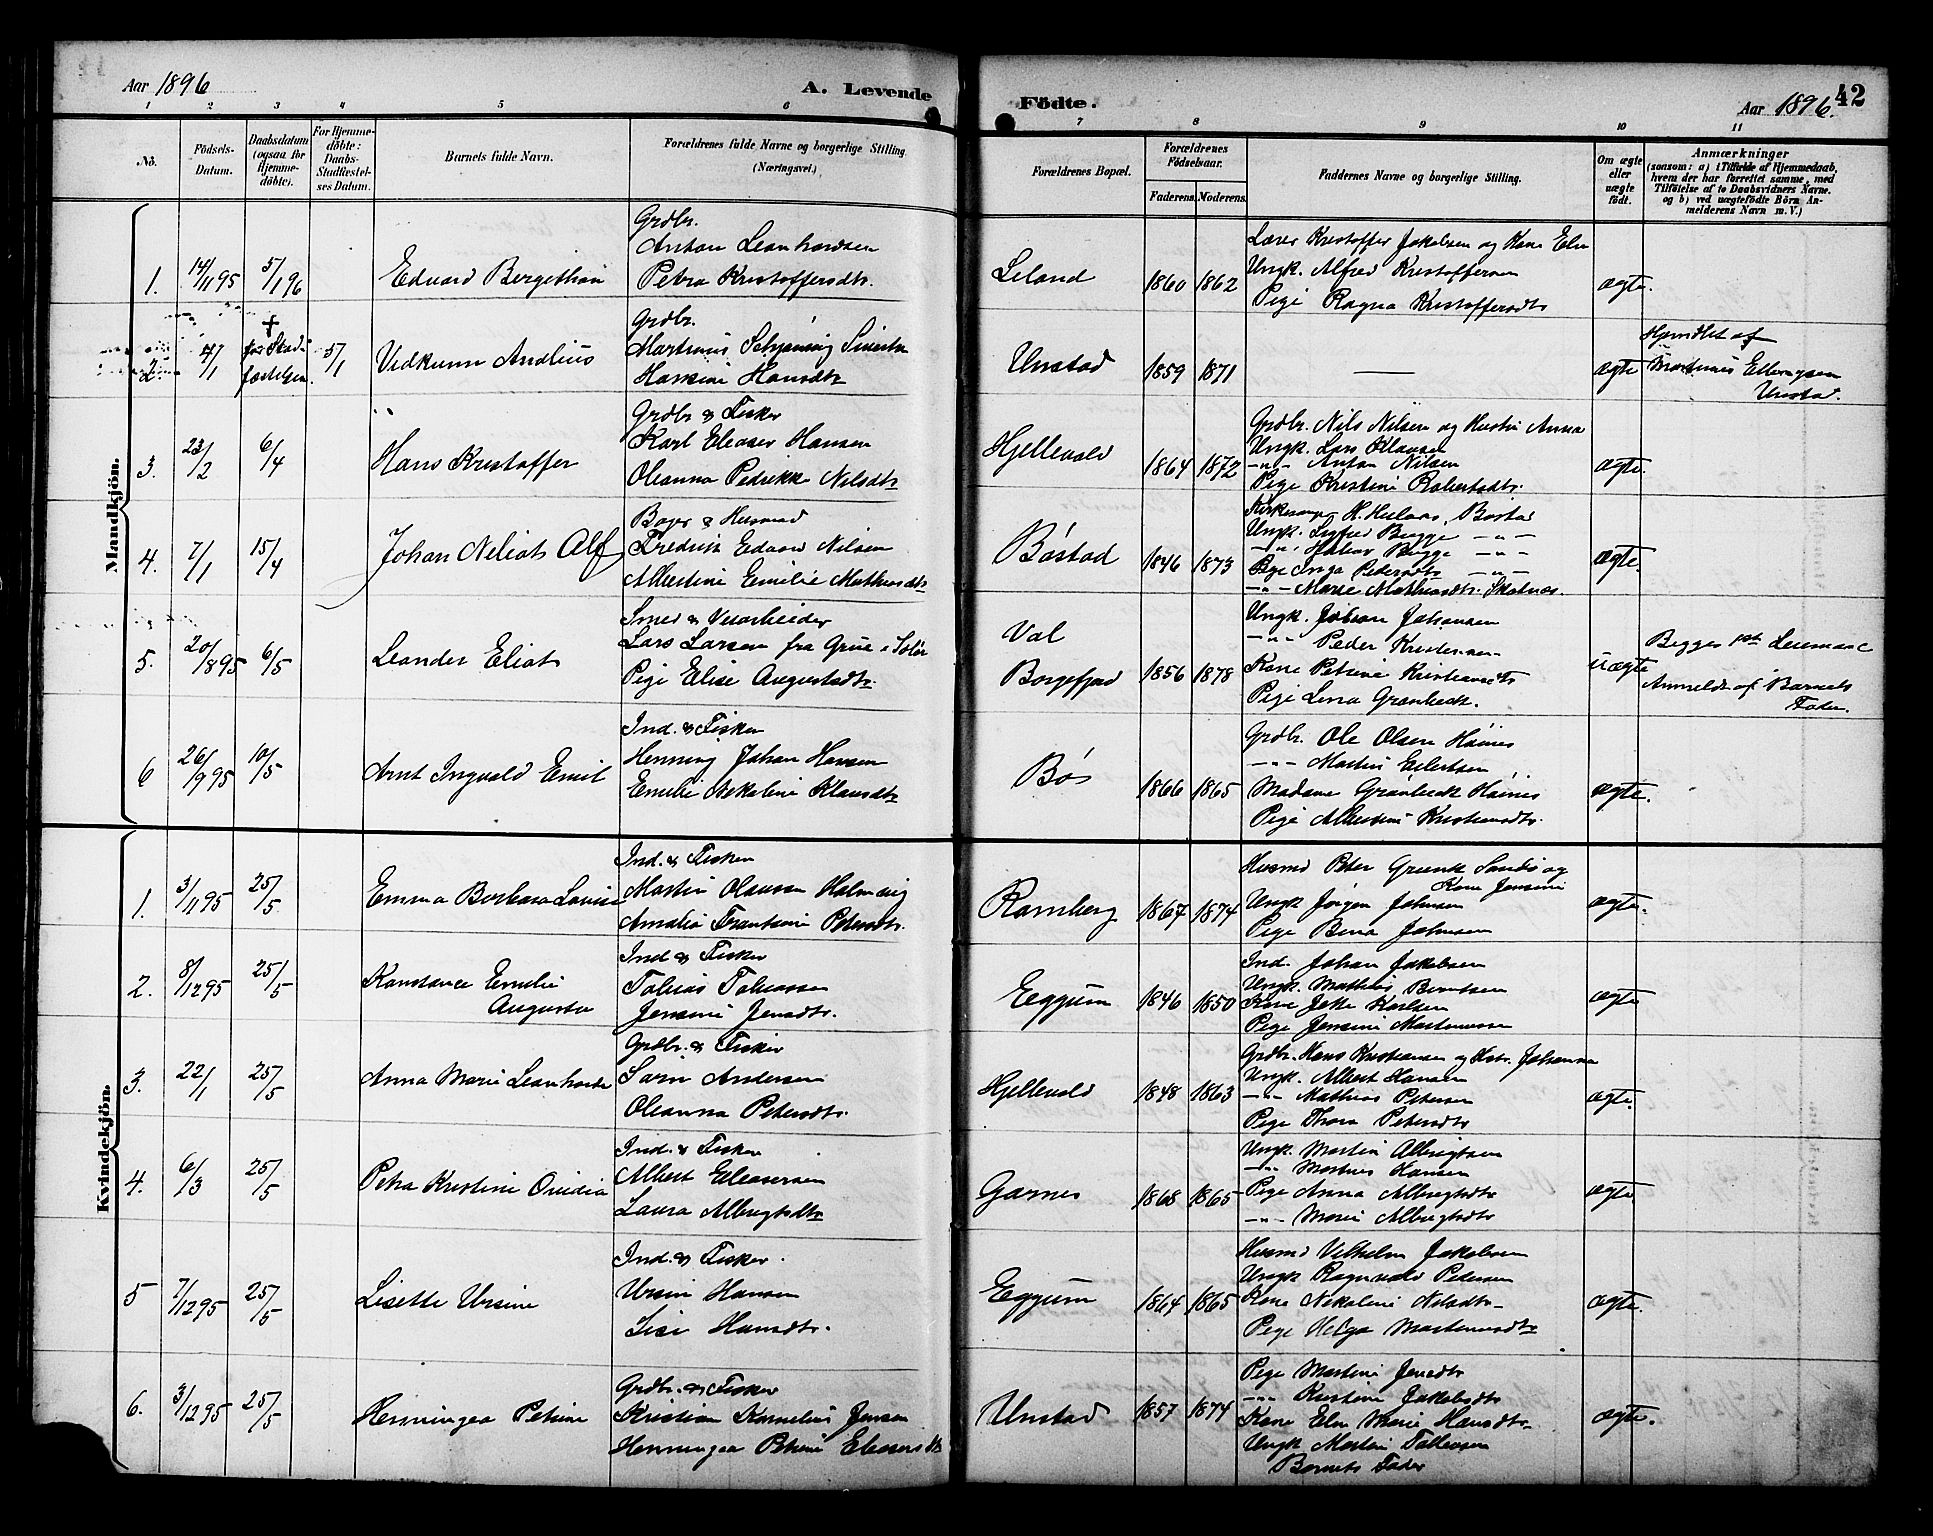 Aar 1896
A. Levende
Födte.
Aar 1896.
42
1 2 3 4 5 6
7 8 9 10 11
No.
Födsels-
Datum.
Daabsdatum
(ogsaa for
Hjemme-
döbte).
For Hjemme-
döbte:
Daabs-
Stadfæstel-
ses Datum.
Barnets fulde Navn.
Forældrenes fulde Navne og borgerlige Stilling
(Næringsvei.)
Forældrenes Bopæl.
Forældrenes
Födselsaar.
Faderens. Moderens.
Faddernes Navne og borgerlige Stilling.
Om ægte
eller
uægte
födt.
Anmærkninger
(saasom: a) i Tilfælde af Hjemmedaab,
hvem der har forrettet samme, med
Tilföielse af to Daabsvidners Navne.
og b) ved uægtefödte Börn An-
melderens Navn m. V.)
Mandkjön.
1. 14/11 95 5/1 96 Eduard Bergethon
Grdbr.
Anton Leonhardsen
Petra Kristoffersdtr.
Leland 1860 1862
Lærer Kristoffer Jakobsen og Kone Elen
Ungk. Alfred Kristoffersen
Pige Ragna Kristoffersdtr
ægte.
2. 4/1 † før Stad-
fæstelsen. 5/1 Vidkunn Andlius
Grdbr.
Martinus Schjøning Sivertsen
Hansine Hansdtr
Unstad 1859 1871 —— ægte
Hjemdøbt af
Martinus Ellingsen
Unstad.
3. 23/2 6/4 Hans Kristoffer
Grdbr & Fisker
Karl Eleaser Hansen
Oleanna Pedrikke Nilsdtr
Hjellevold 1864 1872
Grdbr. Nils Nilsen og Hustru Anna
Ungk. Lars Klausen
—"— Anton Nilsen
Pige Kristine Robertsdtr.
ægte.
4. 7/1 15/4 Johan Neliot Alf
Bager & Husmand
Fredrik Edvard Nilsen
Albertine Emilie Mathiasdtr
Bøstad 1846 1873
Kirkesanger H. Hulaas, Bøstad
Ungk. Sigfred Bugge —"—
—"— Bugge —"—
Pige Inga Pedersdtr —"—
—"— Marie Mathiasdtr. Skotnæs
ægte.
5. 20/8 95 6/5 Leander Eliot
Smed & Veiarbeider
Lars Larsen fra Grue i Solør
Pige Elise Augustsdtr
Val
Borgefjord 1856 1878
Ungk. Johan Johansen
—"— Peder Kristensen
Kone Petrine Kristiansdtr
Pige Lena Grønbeck.
uægte
Begges 1ste Leiermaal
Anmeldt af Barnets
Fader.
6 26/9 95 10/5 Arnt Ingvald Emil
Ind. & Fisker
Henning Johan Hansen
Emilie Nekoline Klausdtr
Bøs 1866 1865
Grdbr. Ole Olsen Høines
—"— Martin Eilertsen
Madame Grønbeck Høines
Pige Albertine Kristensdtr.
ægte.
Kvindekjön.
1. 3/11 95 25/5 Emma Barbara Lovise
Ind. & Fisker
Martin Olausen Holmvig
Amalia Frantsine Petersdtr.
Ramberg 1867 1874
Husmd Peter Grunk Sandø og
Kone Jensine
Ungk Jørgen Johnsen
Pige Bina Johnsen
ægte.
2. 8/12 95 25/5 Konstance Emilie
Augusta
Ind & Fisker
Tobias Tobiassen
Jensine Jensdtr.
Eggum 1846 1850
Ind. Johan Jakobsen
Ungk. Mathias Berntsen
Kone Karlsen
Pige Jensine Mortensen
ægte
3. 22/1 25/5 Anna Marie Leonharda
Grdbr. & Fisker
Sørn Andersen
Oleanna Petersdtr.
Hjellevold 1848 1863
Grdbr. Hans Kristiansen og Hstr. Johanna
Ungk. Albert Hansen
—"— Mathias Petersen
Pige Thora Petersdtr
ægte.
4. 6/3 25/5 Petra Kristine Ovidia
Ind. & Fisker
Albert Eleasersen
Laura Albrigtsdtr
Garnes 1868 1865
Ungk. Martin Albrigtsen
—"— Martines Hansen
Pige Anna Albrigtsdtr
—"— Marie Albrigtsdtr
ægte
5 7/12 95 25/5 Lisette Ursine
Ind. & Fisker.
Ursin Hansen
Lise Hansdtr.
Eggum 1864 1865
Husmd Vilhelm Jakobsen
Ungk Ragnvald Pedersen
Kone Nekoline Nilsdtr.
Pige Helga Mortensdtr
ægte.
6. 3/12 95 25/5 Henningea Petrine
Grdbr. & Fisker
Kristian Kornelius Jensen
Henningea Petrine Eleasersdtr
Unstad 1857 1874
Pige Martine Jensdtr
—"— Kristine Jakobsdtr
Kone Elen Marie Hansdtr.
Ungk Martin Tollevsen
Barnets Fader
ægte.